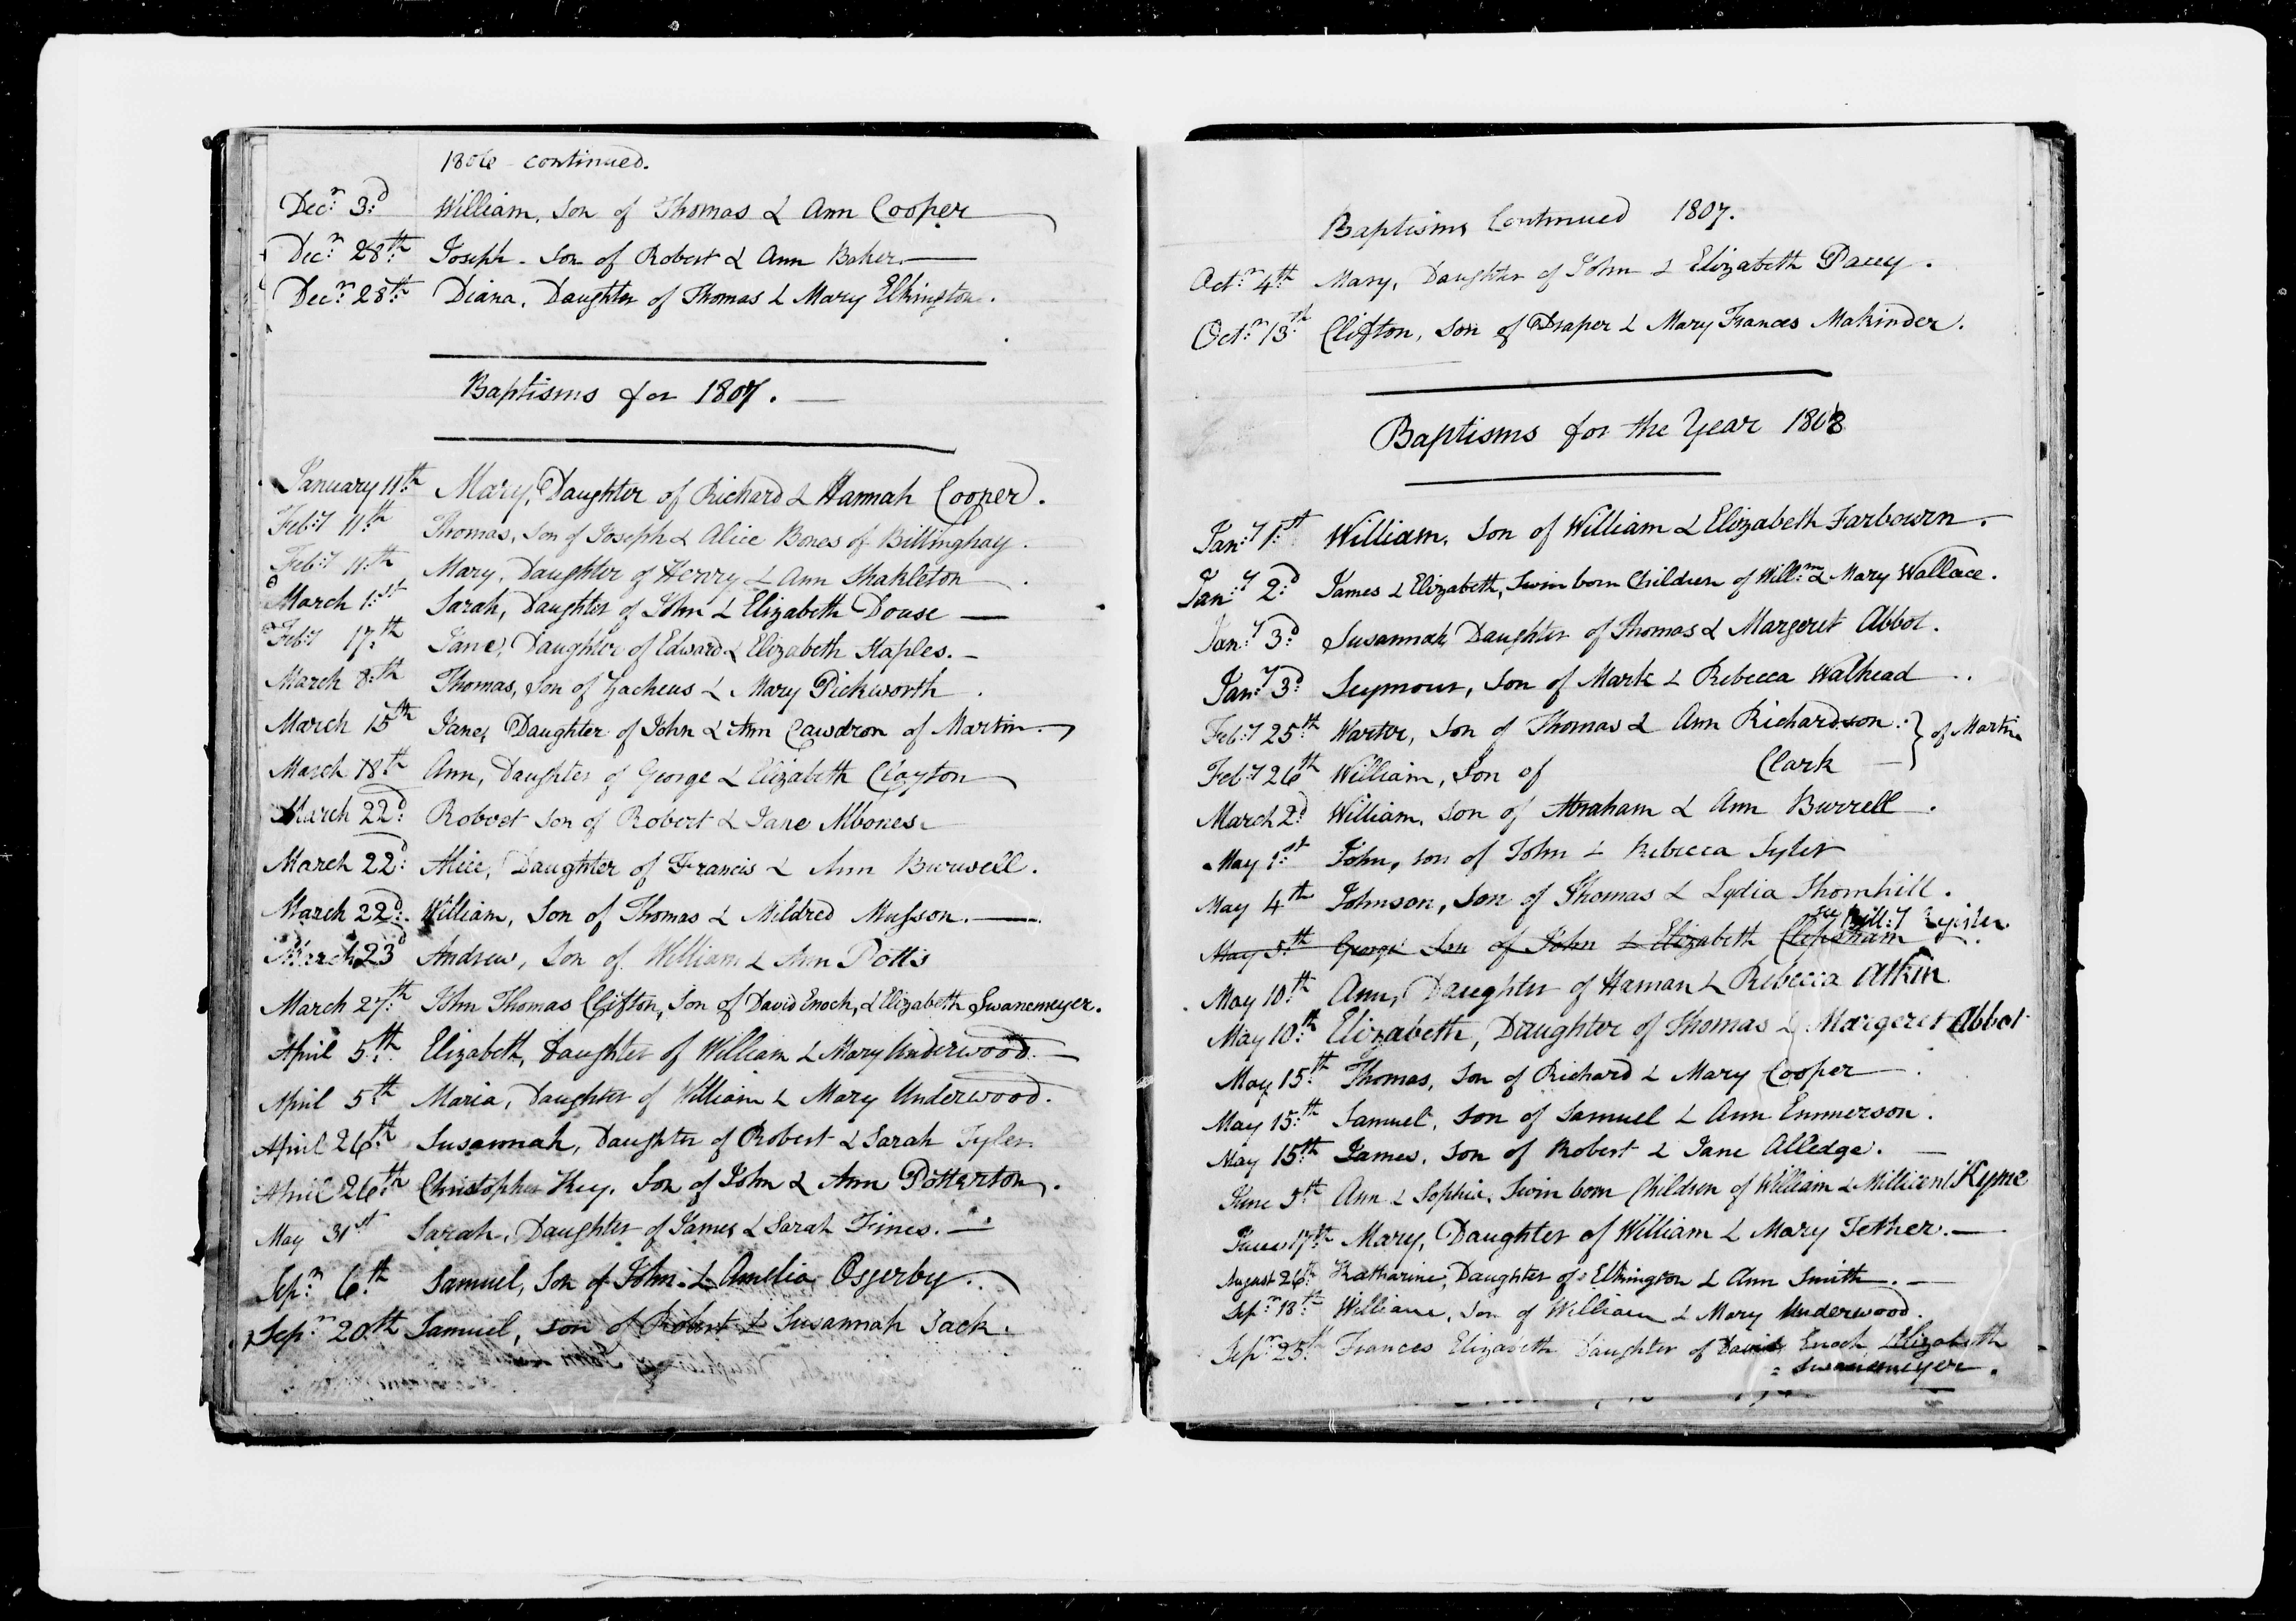 1806 continued.
Decr. 3d. William, Son of Thomas & Ann Cooper
Decr. 28th. Joseph - Son of Robert & Ann Baker.
Decr. 28th. Diana, Daughter of Thomas & Mary Elkington.
Baptisms for 1807.
January 11th. Mary, Daughter of Richard & Hannah Cooper.
Feby. 11th. Thomas, Son of Joseph & Alice Bones of Billinghay.
Feby. 11th. Mary, Daughter of Henry & Ann Shakleton
March 1st. Sarah, Daughter of John & Elizabeth Douse
Feby. 17th. Jane, Daughter of Edward & Elizabeth Staples.
March 8th. Thomas, Son of Zacheus & Mary Pickworth.
March 15th Jane, Daughter of John & Ann Cawdron of Martin.
March 18th. Ann, Daughter of George & Elizabeth Clayton
March 22d. Robert Son of Robert & Jane Mbones.
March 22d. Alice, Daughter of Francis & Ann Burwell.
March 22d. William, Son of Thomas & Mildred Musson.
March 23d Andrew, Son of William & Ann Potts
March 27th. John Thomas Clifton, Son of David Enoch, & Elizabeth Swanemeyer.
April 5th. Elizabeth, Daughter of William & Mary Underwood.
April 5th. Maria, Daughter of William & Mary Underwood.
April 26th. Susannah, Daughter of Robert & Sarah Tyler.
April 26th. Christopher Key, Son of John & Ann Potterton.
May 31st Sarah, Daughter of James & Sarah Fines.
Sepr. 6th. Samuel, Son of John & Amelia Osgerby.
Sepr. 20th Samuel, son of Robert & Susannah Jack.
Baptisms Continued 1807.
Octr. 4th. Mary, Daughter of John & Elizabeth Pacey.
Octr. 13th. Clifton, Son of Draper & Mary Frances Makinder.
Baptisms for the Year 1808
Jany. 1st. William, Son of William & Elizabeth Farbourn.
Jany. 2d. James & Elizabeth, Twin born Children of Willm. & Mary Wallace.
Jany. 3d. Susannah Daughter of Thomas & Margeret Abbot.
Jany. 3d. Seymour, Son of Mark & Rebecca Walhead
Feby. 25th Warter, Son of Thomas & Ann Richardson. } of Martin
Feby. 26th William, Son of Clark
March 2d. William, Son of Abraham & Ann Burrell.
May 1st. John, son of John & Rebecca Tyler
May 4th Johnson, Son of Thomas & Lydia Thornhill.
see Billy Register
May 5th George Son of John & Elizabeth
May 10th. Ann, Daughter of Haman & Rebecca Atkin
May 10th. Elizabeth, Daughter of Thomas & Margeret Abbot
May 15th. Thomas, Son of Richard & Mary Cooper
May 15th. Samuel, Son of Samuel & Ann Emmerson.
May 15th. James, Son of Robert & Jane Alledge.
June 5th. Ann & Sophia, Twin born Children of William & Millicent Kyme
June 17th Mary, Daughter of William & Mary Tether.
August 26th Katharine, Daughter of Elkington & Ann Smith.
Sepr. 18th. William, Son of William & Mary Underwood.
Sepr. 25th Frances Elizabeth Daughter of David Enoch, & Elizabeth
= Swanemeyer.